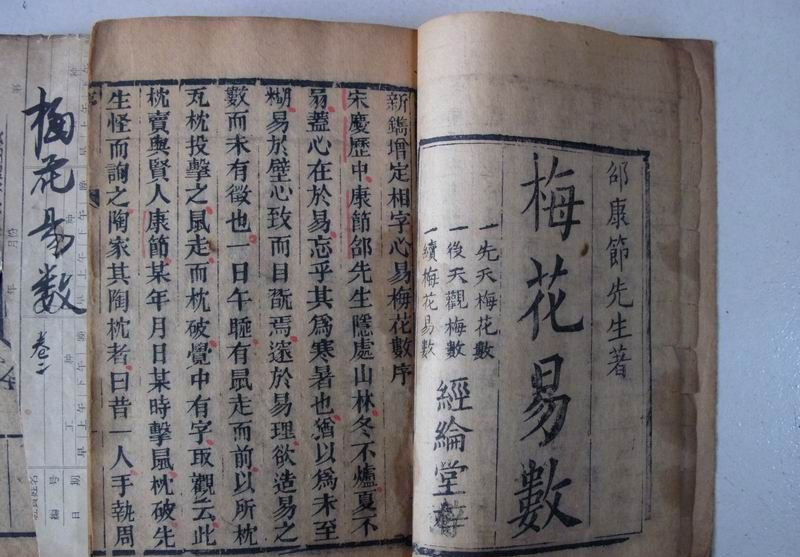 邵康節先生著
梅花易數
一先天梅花數
一後天觀梅數
一續梅花易數
經綸堂梓
新鐫增定相字心易梅花數序
宋慶歷中康節邵先生隱處山林冬不爐夏不
扇蓋心在於易忘乎其為寒暑也猶以為未至
糊易於壁心致而目翫焉邃於易理欲造易之
數而未有徵也一日午睡有鼠走而前以所枕
瓦枕投擊之鼠走而枕破覺中有字取觀云此
枕賣與賢人康節某年月日某時擊鼠枕破先
生怪而詢之陶家其陶枕者曰昔一人手執周
梅花易數
卷二